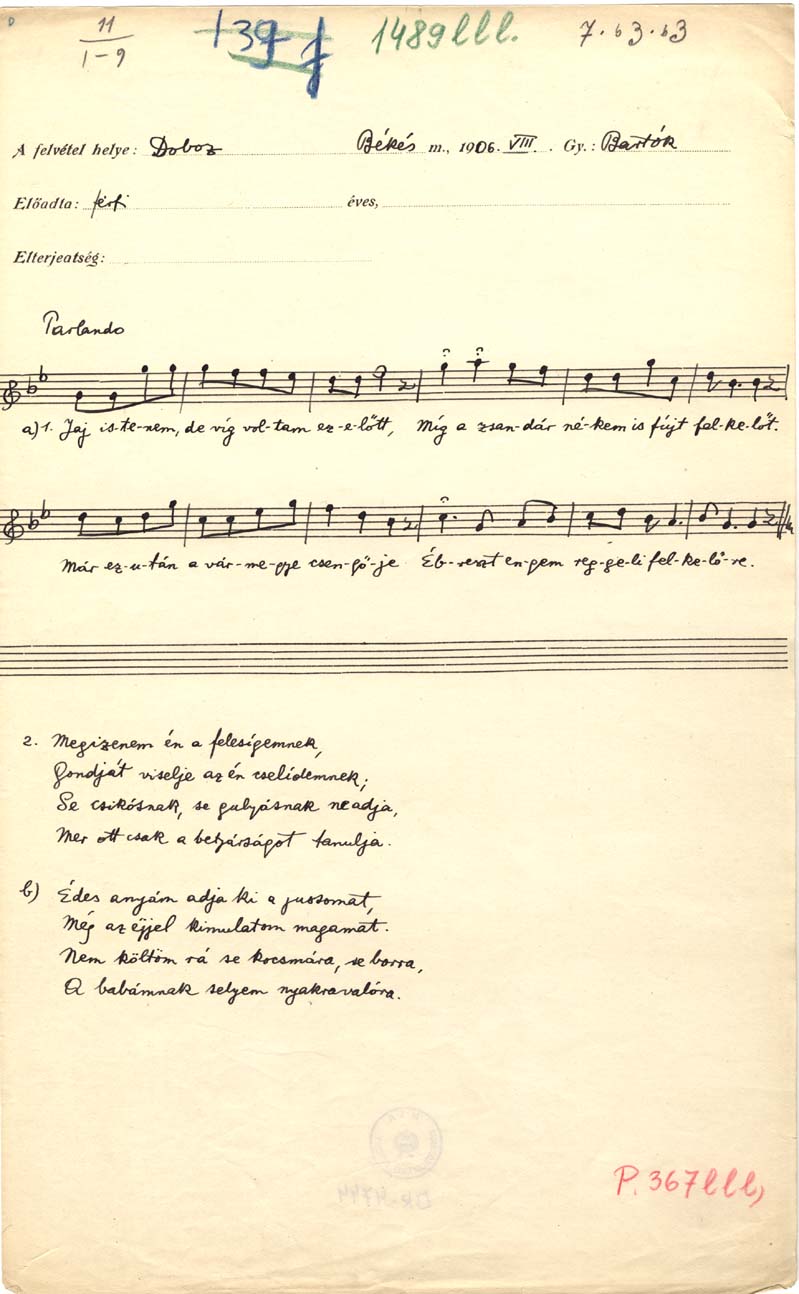 11
1-9
139 j 1489lll. 7. b3. b3
A felvétel helye: Doboz Békés m., 1906. VIII. Gy.: Bartók
Előadta: férfi éves,
Elterjedtség:
Parlando
a) 1. Jaj is-te-nem, de víg vol-tam ez-e-lőtt, Míg a zsan-dár né-kem is fújt fel-ke-lőt.
Már ez-u-tán a vár-me-gye csen-gő-je Éb-reszt en-gem reg-ge-li fel-ke-lő-re.
2. Megizenem én a feleségemnek,
Gondját viselje az én cselédemnek;
Se csikósnak, se gulyásnak ne adja,
Mer ott csak a betyárságot tanulja.
b) Édes anyám adja ki a jussomat,
Még az éjjel kimulatom magamat.
Nem költöm rá se kocsmára, se borra,
A babámnak selyem nyakravalóra.
P. 367lll,